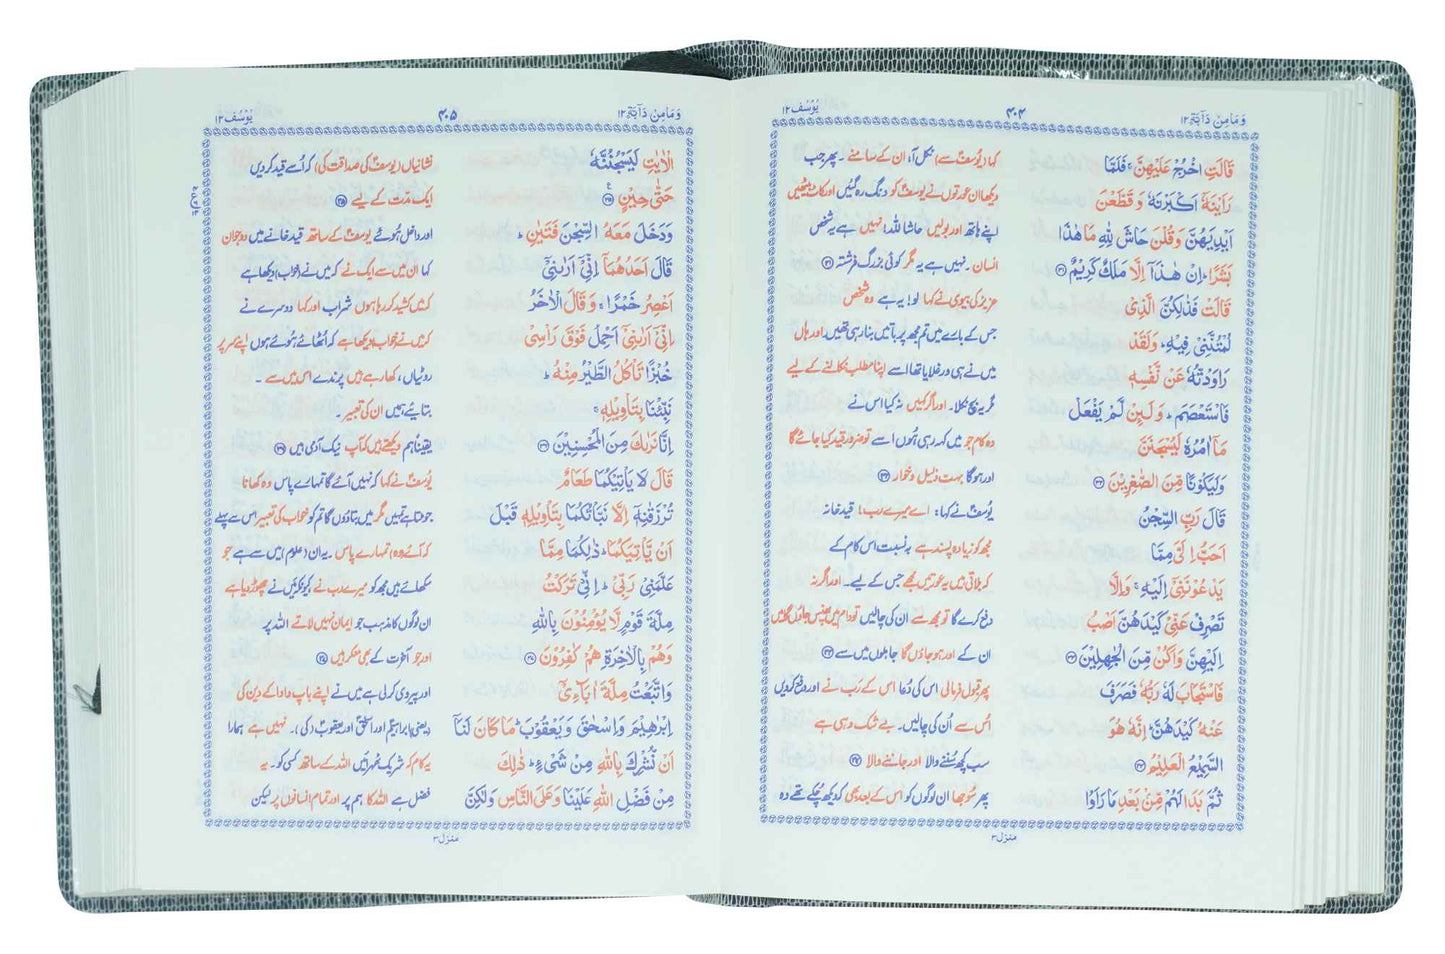 وَمَا مِنْ دَآبَّةٍ ١٢
۴۰۴
يُوْسُف ١٢
قَالَتِ اخْرُجْ عَلَيْهِنَّ ۚ فَلَمَّا
کہا (یُوسفؑ سے) نکل آ، ان کے سامنے ۔ پھر جب
رَاَيْنَهٗۤ اَكْبَرْنَهٗ وَ قَطَّعْنَ
دیکھا ان عورتوں نے یُوسفؑ کو دنگ رہ گئیں اور کاٹ بیٹھیں
اَيْدِيَهُنَّ وَقُلْنَ حَاشَ لِلّٰهِ مَا هٰذَا
اپنے ہاتھ اور بولیں حاشا للہ! نہیں ہے یہ شخص
بَشَرًا ؕ اِنْ هٰذَاۤ اِلَّا مَلَكٌ كَرِيْمٌ ۳۱
انسان ۔ نہیں ہے یہ مگر کوئی بزرگ فرشتہ ۳۱
قَالَتْ فَذٰلِكُنَّ الَّذِىْ
عزیز کی بیوی نے کہا لو! یہ ہے وہ شخص
لُمْتُنَّنِىْ فِيْهِ ؕ وَلَقَدْ
جس کے بارے میں تم مجھ پر باتیں بنا رہی تھیں اور ہاں
رَاوَدْتُّهٗ عَنْ نَّفْسِهٖ
میں نے ہی ورغلایا تھا اسے اپنا مطلب نکالنے کے لیے
فَاسْتَعْصَمَ ؕ وَلَئِنْ لَّمْ يَفْعَلْ
مگر یہ بچ نکلا۔ اور اگر نہیں کیا اس نے
مَاۤ اٰمُرُهٗ لَيُسْجَنَنَّ
وہ کام جو میں کہہ رہی ہُوں اسے تو ضرور قید کیا جائے گا
وَلَيَكُوْنًا مِّنَ الصّٰغِرِيْنَ ۳۲
اور ہوگا بہت ذلیل و خوار ۳۲
قَالَ رَبِّ السِّجْنُ
یُوسفؑ نے کہا: اے میرے رب! قید خانہ
اَحَبُّ اِلَىَّ مِمَّا
مجھ کو زیادہ پسند ہے بہ نسبت اس کام کے
يَدْعُوْنَنِىْۤ اِلَيْهِ ۚ وَاِلَّا
کہ بلاتی ہیں یہ عورتیں مجھے جس کے لیے۔ اور اگر نہ
تَصْرِفْ عَنِّىْ كَيْدَهُنَّ اَصْبُ
دفع کرے گا تو مجھ سے ان کی چالیں تو دام میں پھنس جاؤں گا میں
اِلَيْهِنَّ وَاَكُنْ مِّنَ الْجٰهِلِيْنَ ۳۳
ان کے اور ہو جاؤں گا جاہلوں میں سے ۳۳
فَاسْتَجَابَ لَهٗ رَبُّهٗ فَصَرَفَ
پھر قبول فرمائی اس کی دُعا اس کے رَب نے اور دفع کردیں
عَنْهُ كَيْدَهُنَّ ؕ اِنَّهٗ هُوَ
اُس سے اُن کی چالیں۔ بے شک وہی ہے
السَّمِيْعُ الْعَلِيْمُ ۳۴
سب کچھ سُننے والا اور جاننے والا ۳۴
ثُمَّ بَدَا لَهُمْ مِّنْۢ بَعْدِ مَا رَاَوُا
پھر سُوجھا ان لوگوں کو اس کے بعد بھی کہ دیکھ چُکے تھے وہ
منزل ۳
وَمَا مِنْ دَآبَّةٍ ١٢
۴۰۵
يُوْسُف ١٢
الْاٰيٰتِ لَيَسْجُنُنَّهٗ
نشانیاں (یوسفؑ کی صداقت کی) کہ اُسے قید کردیں
حَتّٰى حِيْنٍ ۳۵
ایک مدّت کے لیے ۳۵
وَدَخَلَ مَعَهُ السِّجْنَ فَتَيٰنِ ؕ
اور داخل ہُوئے یوسفؑ کے ساتھ قید خانے میں دو جوان
قَالَ اَحَدُهُمَاۤ اِنِّىْۤ اَرٰىنِىْۤ
کہا ان میں سے ایک نے کہ میں نے (خواب) دیکھا ہے
اَعْصِرُ خَمْرًا ۚ وَقَالَ الْاٰخَرُ
کہ میں کشید کر رہا ہوں شراب اور کہا دوسرے نے
اِنِّىْۤ اَرٰىنِىْۤ اَحْمِلُ فَوْقَ رَاْسِىْ
کہ میں نے خواب دیکھا ہے کہ اُٹھائے ہُوئے ہوں اپنے سر پر
خُبْزًا تَاْكُلُ الطَّيْرُ مِنْهُ ؕ
روٹیاں، کھا رہے ہیں پرندے اس میں سے ۔
نَبِّئْنَا بِتَاْوِيْلِهٖ ۚ
بتائیے ہمیں ان کی تعبیر ۔
اِنَّا نَرٰىكَ مِنَ الْمُحْسِنِيْنَ ۳۶
یقیناً ہم دیکھتے ہیں کہ آپ نیک آدمی ہیں ۳۶
قَالَ لَا يَاْتِيْكُمَا طَعَامٌ
یُوسفؑ نے کہا کہ نہیں آئے گا تمہارے پاس وہ کھانا
تُرْزَقٰنِهٖۤ اِلَّا نَبَّاْتُكُمَا بِتَاْوِيْلِهٖ قَبْلَ
جو ملتا ہے تمہیں مگر میں بتا دوں گا تم کو خواب کی تعبیر اس سے پہلے
اَنْ يَّاْتِيَكُمَا ؕ ذٰلِكُمَا مِمَّا
کہ آئے وہ تمہارے پاس یہ ان (علوم) میں سے ہے جو
عَلَّمَنِىْ رَبِّىْ ؕ اِنِّىْ تَرَكْتُ
سکھائے ہیں مجھ کو میرے رب نے کیونکہ میں نے چھوڑ دیا ہے
مِلَّةَ قَوْمٍ لَّا يُؤْمِنُوْنَ بِاللّٰهِ
ان لوگوں کا مذہب جو ایمان نہیں لاتے اللہ پر
وَهُمْ بِالْاٰخِرَةِ هُمْ كٰفِرُوْنَ ۳۷
اور جو آخرت کے بھی منکر ہیں ۳۷
وَاتَّبَعْتُ مِلَّةَ اٰبَآءِىْۤ
اور پیروی کرلی ہے میں نے اپنے باپ دادا کے دین کی
اِبْرٰهِيْمَ وَاِسْحٰقَ وَيَعْقُوْبَ ؕ مَا كَانَ لَنَاۤ
(یعنی) ابراہیمؑ اور اسحٰقؑ اور یعقوبؑ (کی)۔ نہیں ہے ہمارا
اَنْ نُّشْرِكَ بِاللّٰهِ مِنْ شَىْءٍ ؕ ذٰلِكَ
یہ کام کہ شریک ٹھہرائیں اللہ کے ساتھ کسی کو۔ یہ
مِنْ فَضْلِ اللّٰهِ عَلَيْنَا وَعَلَى النَّاسِ وَلٰكِنَّ
فضل ہے اللہ کا ہم پر اور تمام انسانوں پر لیکن
منزل ۳